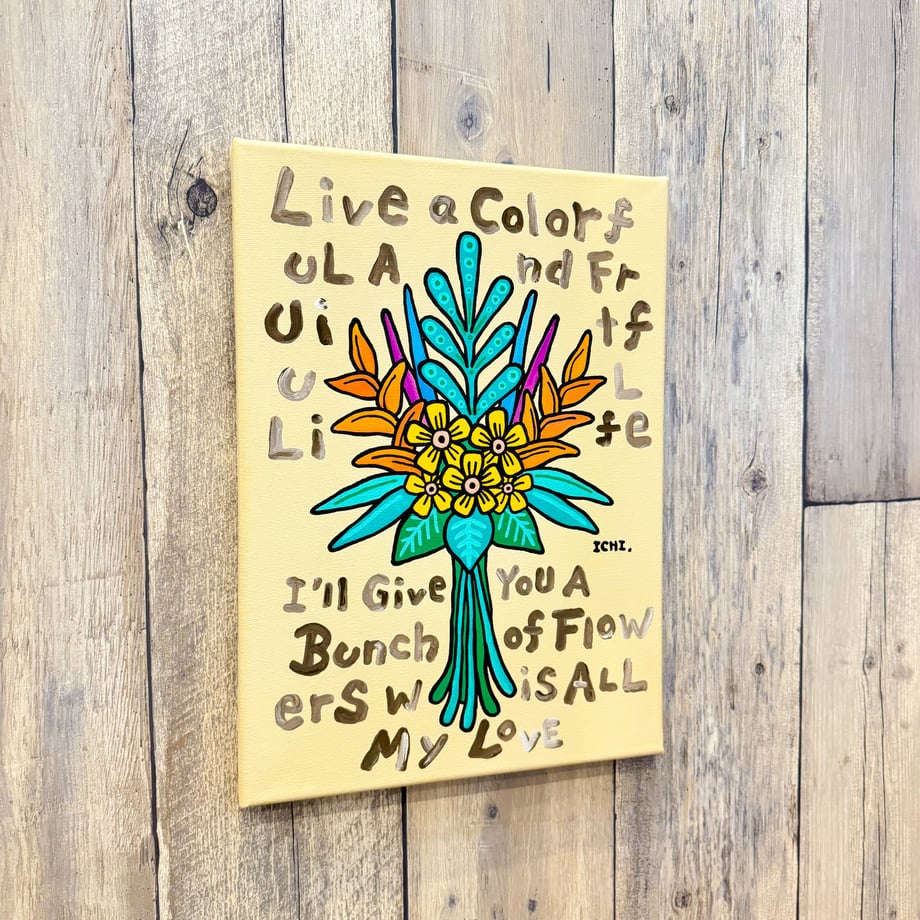 Live a Colorf
uL A nd Fr
Ui tf
u L
Li fe
ICHI.
I'll Give You A
Bunch of Flow
ers w is ALL
My Love